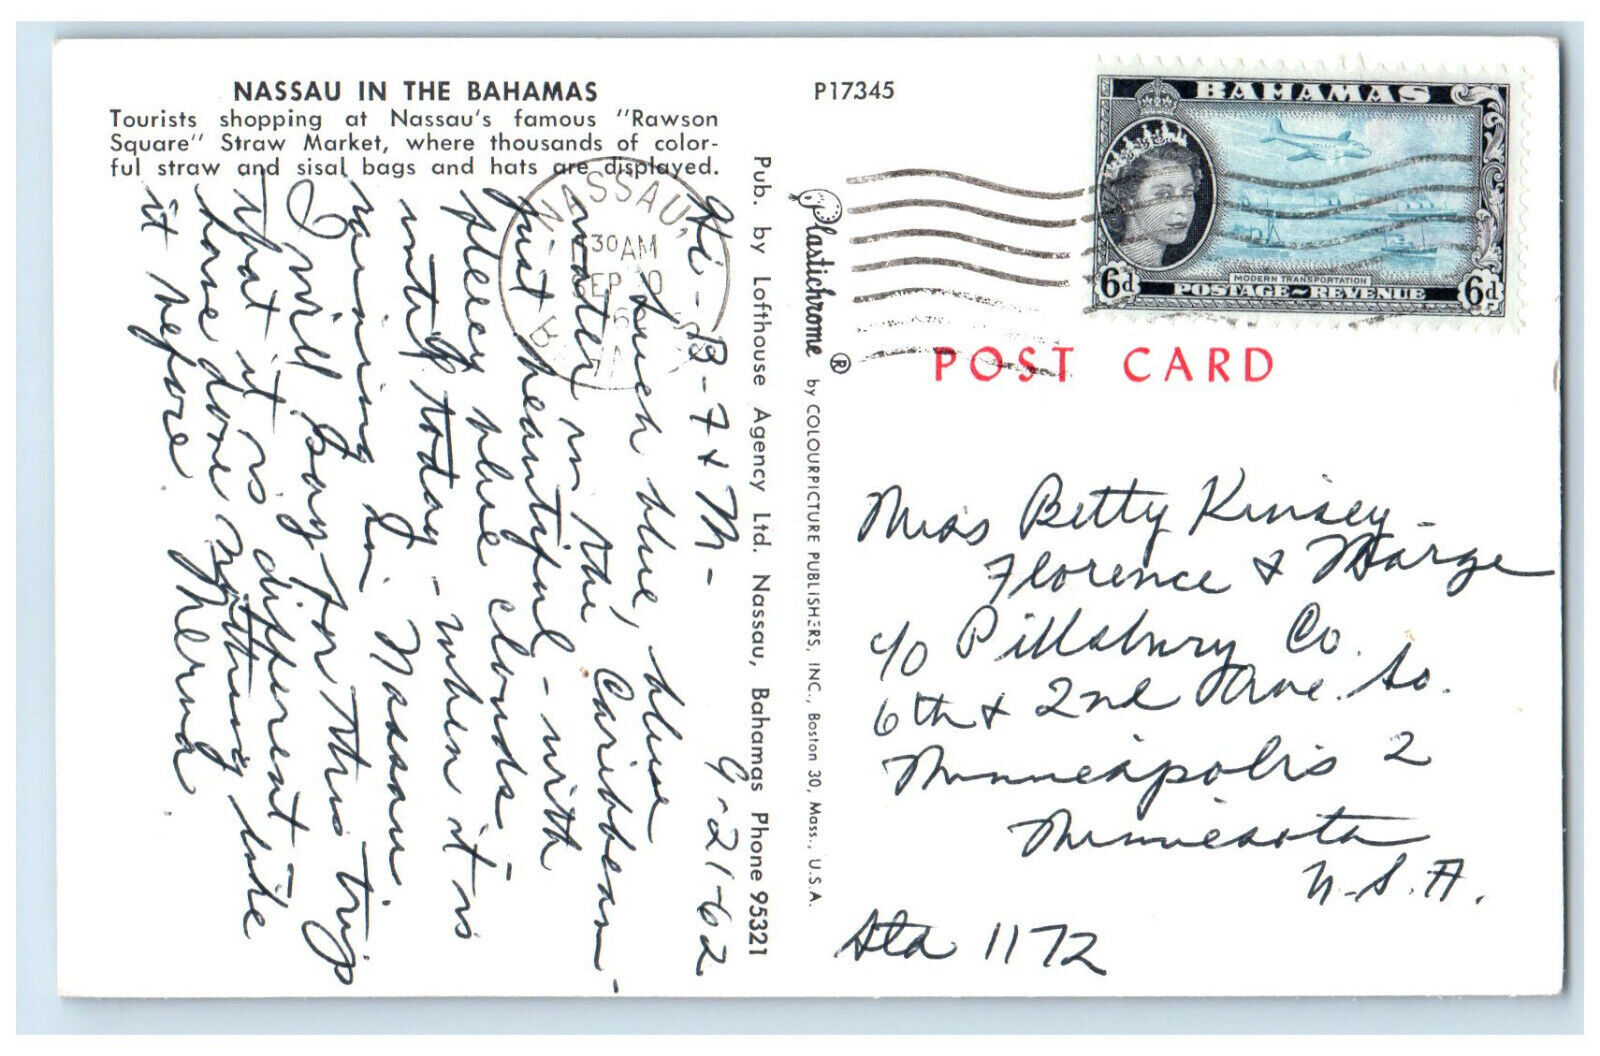 NASSAU IN THE BAHAMAS
Tourists shopping at Nassau's famous "Rawson
Square" Straw Market, where thousands of color-
ful straw and sisal bags and hats are displayed.
P17345
9-21-62
Hi - B - F & M -
Such blue, blue
water in the Caribbean -
just beautiful - with
fleecy blue clouds
until today - when it is
raining in Nassau.
I will pay for this trip
that it is different
have done nothing like
it before. Merna
Pub. by Lofthouse Agency Ltd. Nassau, Bahamas Phone 95321
Plastichrome ® by COLOURPICTURE PUBLISHERS, INC., Boston 30, Mass., U.S.A.
NASSAU,
30 AM
SEP
BAHAMAS
6d
MODERN TRANSPORTATION
POSTAGE~REVENUE
6d
POST CARD
Miss Betty Kinsey -
Florence & Marge
c/o Pillsbury Co.
6th & 2nd Ave. So.
Minneapolis 2
Minnesota
U.S.A.
Sta 1172